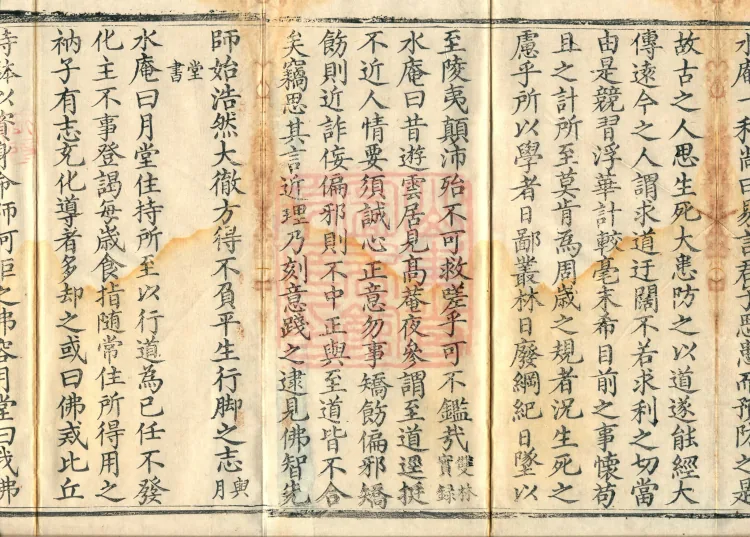 水庵一和尚曰易言君子思患而預防之是
故古之人思生死大患防之以道遂能經大
傳遠今之人謂求道迂闊不若求利之切當
由是競習浮華計較毫末希目前之事懷苟
且之計所至莫肯為周歲之規者況生死之
慮乎所以學者日鄙叢林日廢綱紀日墜以
至陵夷顛沛殆不可救嗟乎可不鑑哉雙林實錄
水庵曰昔遊雲居見高菴夜參謂至道逕挺
不近人情要須誠心正意勿事矯飭偏邪矯
飭則近詐侫偏邪則不中正與至道皆不合
矣竊思其言近理乃刻意踐之逮見佛智先
師始浩然大徹方得不負平生行脚之志與月
堂書
水庵曰月堂住持所至以行道為己任不發
化主不事登謁每歲食指隨常住所得用之
衲子有志充化導者多却之或曰佛戒比丘
持鉢以資身命師何拒之弗容月堂曰我佛